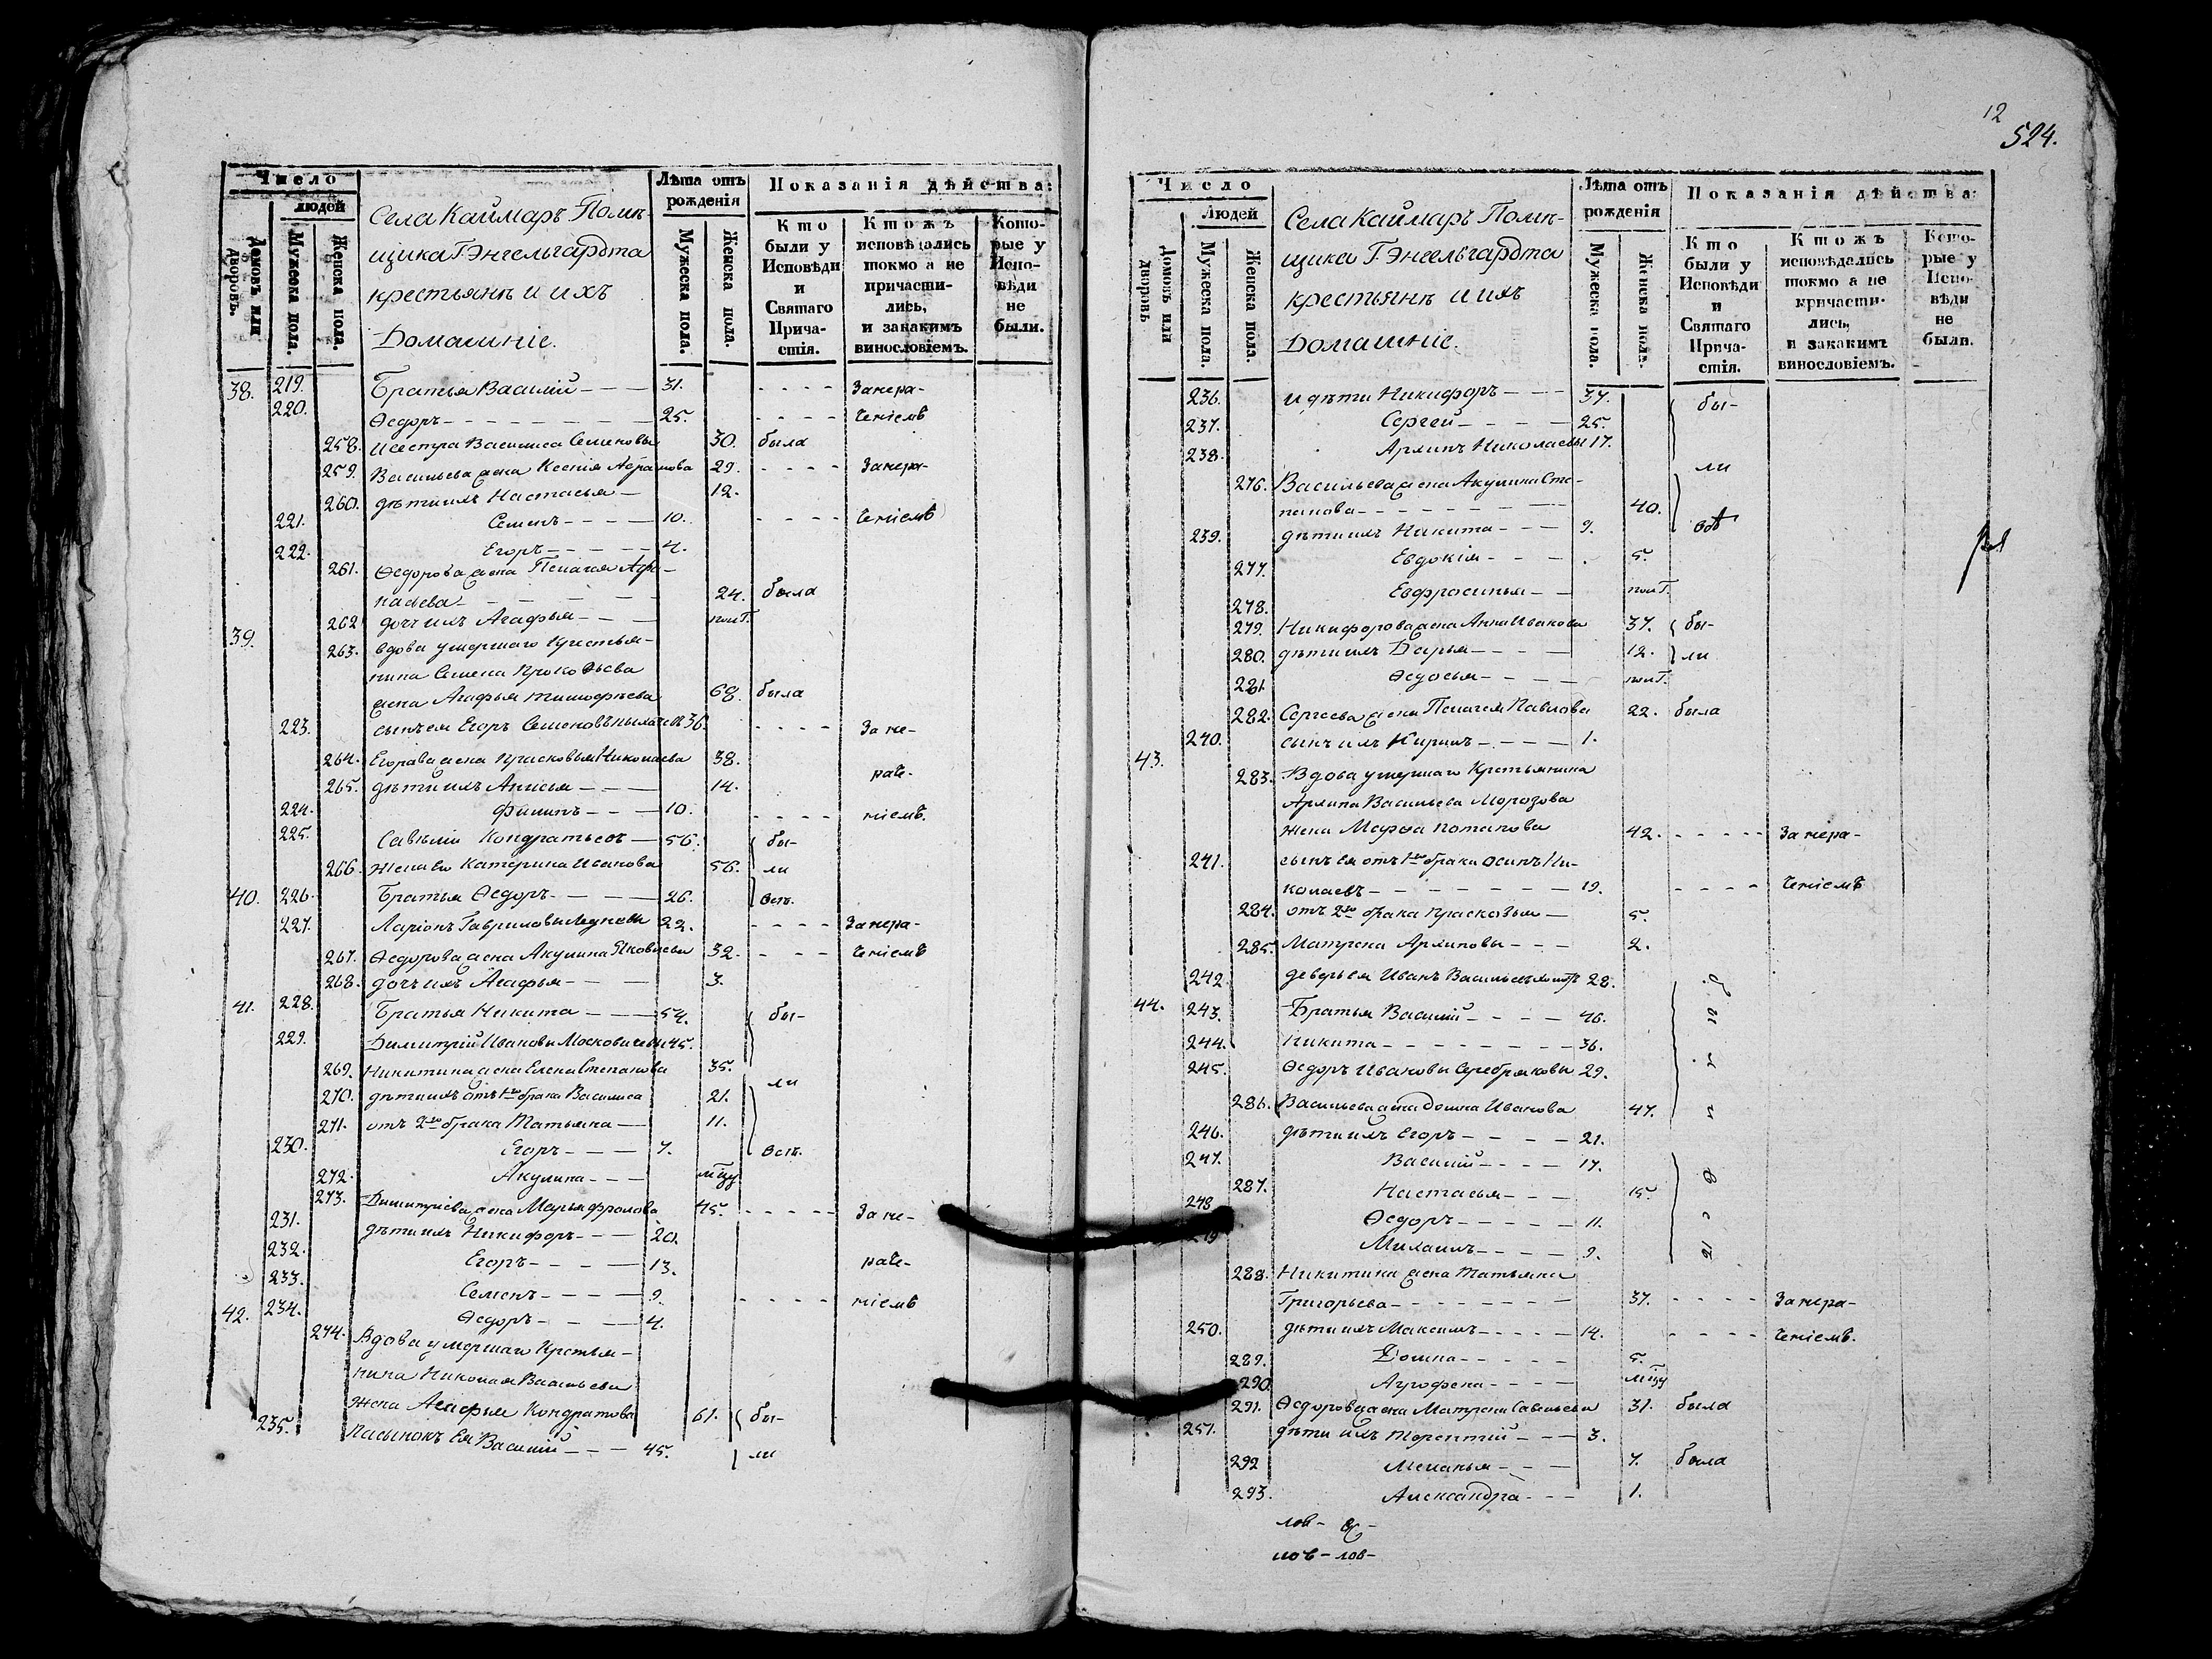 Число
людей
Домовъ или дворовъ.
Мужеска пола.
Женска пола.
Села Каймаръ Помѣ-
щика Г. Энгельгардта
крестьянѣ и ихъ
Домашніе.
Лѣта отъ рожденія
Мужеска пола.
Женска пола.
Показанія дѣйства:
Кто были у Исповѣди и Святаго Прича-стія.
Ктожъ исповѣдались токмо а не причасти-лись, и закакимъ винословіемъ.
Кото-рые у Испо-вѣди не были.
38. 219. Братья Василий - - - 31. - - - - Занера-
220. Ѳедоръ - - - - - - - 25. - - - - ченіемъ
258. и сестра Василиса Семеновы 30. была
259. Васильева жена Ксенія Абрамова 29. - - - - Занера-
260. дѣти ихъ Настасья - 12.
221. Семенъ - - - - 10. - - - - ченіемъ
222. Егоръ - - - - - 4.
261. Ѳедорова жена Пелагея
24. была
262. дочь ихъ Агафья - - - пол Г.
39. 263. вдова умершаго крестья-
нина Семена Прокофьева
жена Агафья Тимофѣева 68. была
223. сынъ ея Егоръ Семеновъ 36. - - - - За не-
264. Егорова жена Прасковья Николаева 38.
265. дѣти ихъ Анисья - - - 14. раче-
224. Филипъ - - - 10. - - - - ніемъ.
225. Савелій Кондратьевъ - 56. бы-
266. Жена его Катерина Иванова 56. ли
40. 226. Братья Ѳедоръ - - - - 26. всѣ.
227. Ларіонъ Гавриловы 22. - - - - Занера-
267. Ѳедорова жена Акулина Яковлева 32. - - - ченіемъ
268. дочь ихъ Агафья - - - 3.
41. 228. Братья Никита - - - 54. бы-
229. Димитрій Ивановы Московцевы 45.
269. Никитина жена Елена Степанова 35. ли
270. дѣти ихъ отъ 1го брака Василиса 21.
271. отъ 2го брака Татьяна - 11.
230. Егоръ - - - 7. всѣ.
272. Акулина - - -
273. Димитріева жена Марья Фролова 45. - - - - - За не-
231. дѣти ихъ Никифоръ - - - 20.
232. Егоръ - - - - 13. раче-
233. Семенъ - - - - 9.
42. 234. Ѳедоръ - - - 4. - - - - ніемъ
274. Вдова умершаго крестья-
нина Николая Васильева
жена Агафья Кондратова 61. бы-
235. Пасынокъ Ея Василий - - - 45. ли
12
524.
Число
Людей
Домовъ или дворовъ
Мужеска пола.
Женска пола.
Села Каймаръ Помѣ-
щика Г. Энгельгардта
крестьянѣ и ихъ
Домашніе.
Лѣта отъ рожденія
Мужеска пола.
Женска пола.
Показанія дѣйства:
Кто были у Исповѣди и Святаго Прича-стія.
Ктожъ исповѣдались токмо а не причасти-лись, и закакимъ винословіемъ.
Кото-рые у Испо-вѣди не были.
236. и дѣти Никифоръ - - - 37. бы-
237. Сергей - - - - 25.
238. Архипъ Николаевы 17.
ли
276. Васильева жена Акулина Сте-
панова - - - - - - - 40.
239. дѣти ихъ Никита - - - 9. всѣ
277. Евдокія - - - - 5.
278. Евфросинья - - пол Г.
279. Никифорова жена Анна Иванова 37. бы-
280. дѣти ихъ Дарья - - - - 12. ли
281. Ѳедосья - - - - пол Г.
282. Сергеева жена Пелагея Павлова 22. была
240. сынъ ихъ Кирилъ - - - - 1.
43. 283. Вдова умершаго Крестьянина
Архипа Васильева Морозова
жена Марфа Потапова 42. - - - - - Занера-
241. сынъ ея отъ 1го брака Осипъ Ни-
колаевъ - - - - - - - 19. - - - - ченіемъ
284. отъ 2го брака Прасковья - 5.
285. Матрена Архиповы - - - 2.
242. деверь ея Иванъ Васильевъ 28.
44. 243. Братья Василий - - - - 46. бы
244. Никита - - - - - - - - 36.
245. Ѳедоръ Ивановы Серебряковы 29. ли
286. Васильева жена Домна Иванова 47.
246. дѣти ихъ Егоръ - - - - 21.
247. Василий - - - - 17.
287. Настасья - - - 15. всѣ
248. Ѳедоръ - - - - - 11.
249 Михаилъ - - - - 9.
288. Никитина жена Татьяна
Григорьева - - - - - - - 37. - - - - Занера-
250. дѣти ихъ Максимъ - - - - 14. - - - - ченіемъ.
289. Домна - - - - - 5.
290. Агрофена - - - -
291. Ѳедорова жена Матрена Савельева 31. была
251. дѣти ихъ Терентий - - - 3.
292 Меланья - - - 7. была
293. Александра - - - 1.